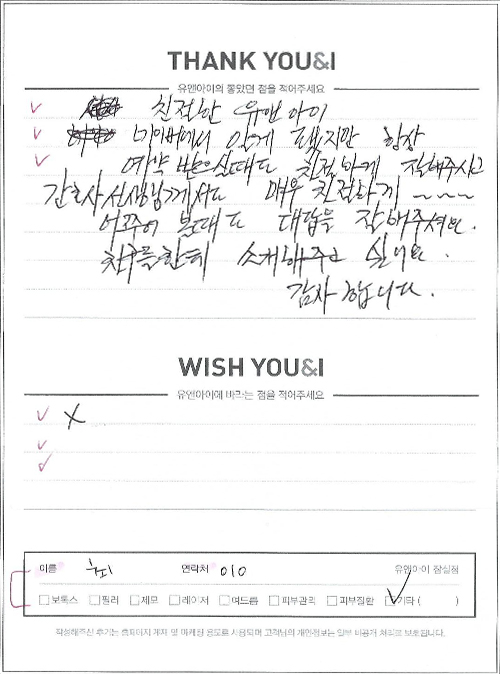 THANK YOU&I
유앤아이의 좋았던 점을 적어주세요
친절한 유앤아이
네이버에서 알게 됐지만 항상
예약 받으실때도 친절하게 잘해주시고
간호사선생님께서도 매우 친절하게 ~~~
여쭈어 볼때도 대답을 잘해주셔요.
친구들한테 소개해주고 싶네요.
감사합니다.
WISH YOU&I
유앤아이에 바라는 점을 적어주세요
X
이름 연락처 010 유앤아이 잠실점
보톡스 필러 제모 레이저 여드름 피부관리 피부질환 기타 ( )
작성해주신 후기는 홈페이지 게재 및 마케팅 용도로 사용되며 고객님의 개인정보는 일부 비공개 처리로 보호됩니다.